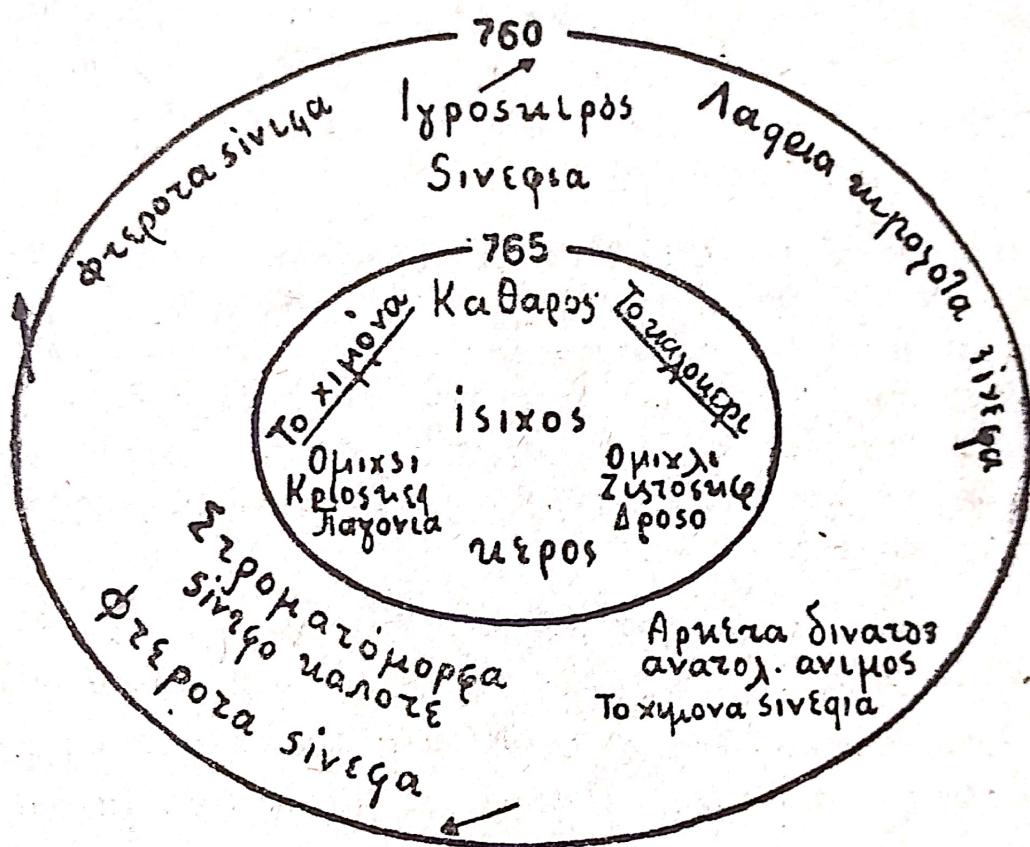 760
Ιγρόςκερος
Sινεφια
Φτεροτα sίνεφα
Λαφρια κιμοζοτα sίνεφα
765
Καθαρος
Το χιμόνα
Το καλοκερι
ίsιχος
Ομιχsι
Κριοςκερ
Παγονια
Ομιχλι
Ζιςτόςκερ
Δροsο
κερος
Στροματόμορφα
sίνεφο καποτε
Φτεροτα sίνεφα
Αρκετα δινατος
ανατολ. ανιμος
Το χιμονα sινεφια